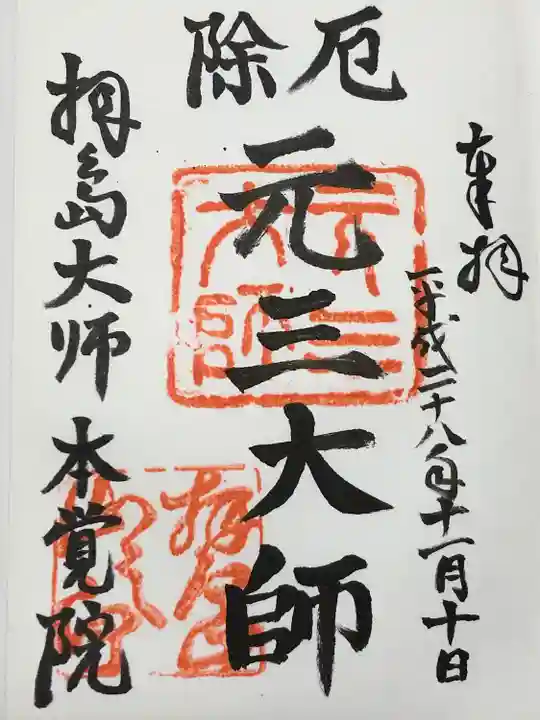 厄除
奉拝
平成二十八年十一月十日
元三大師
元三大師
拝島大师
本覚院